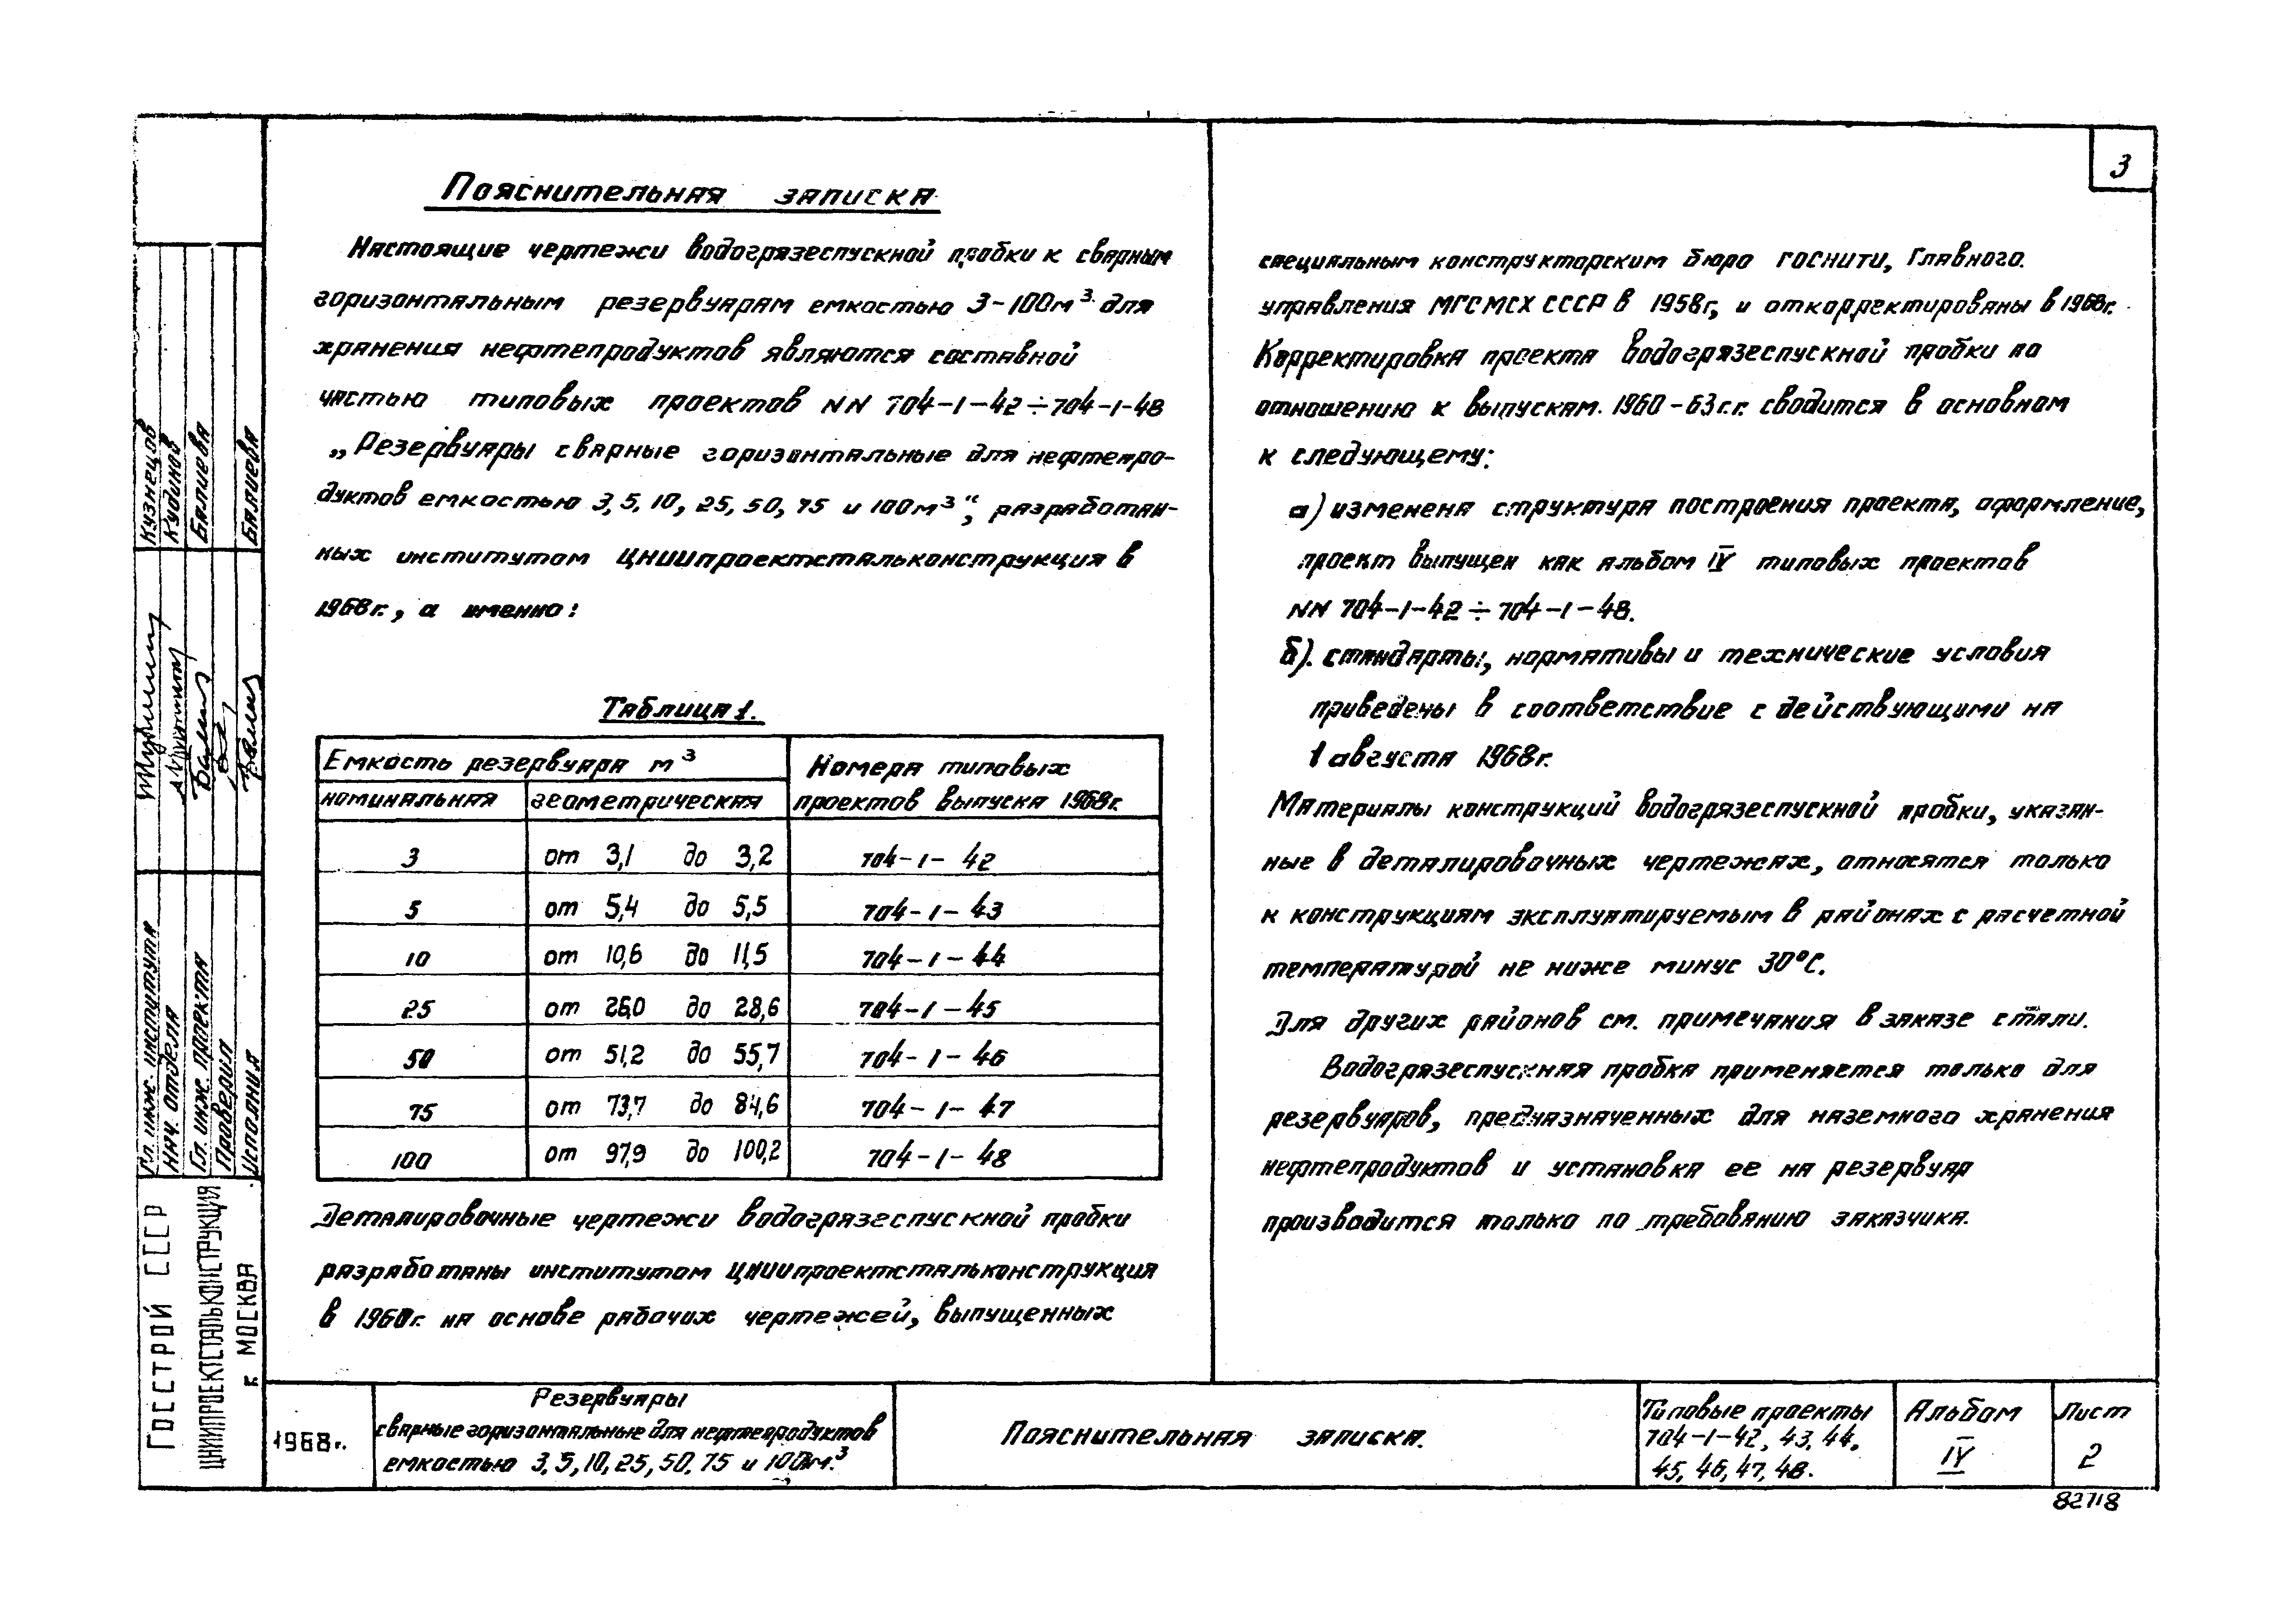 3
Пояснительная записка
Настоящие чертежи водогрязеспускной пробки к сварным
горизонтальным резервуарам емкостью 3-100м³ для
хранения нефтепродуктов являются составной
частью типовых проектов NN 704-1-42÷704-1-48
„Резервуары сварные горизонтальные для нефтепро-
дуктов емкостью 3, 5, 10, 25, 50, 75 и 100м³“, разработан-
ных институтом ЦНИИпроектстальконструкция в
1968г., а именно:
Таблица 1.
Емкость резервуара м³ Номера типовых
номинальная геометрическая проектов выпуска 1968г.
3 от 3,1 до 3,2 704-1-42
5 от 5,4 до 5,5 704-1-43
10 от 10,6 до 11,5 704-1-44
25 от 26,0 до 28,6 704-1-45
50 от 51,2 до 55,7 704-1-46
75 от 73,7 до 84,6 704-1-47
100 от 97,9 до 100,2 704-1-48
Деталировочные чертежи водогрязеспускной пробки
разработаны институтом ЦНИИпроектстальконструкция
в 1960г. на основе рабочих чертежей, выпущенных
специальным конструкторским бюро ГОСНИТИ, Главного
управления МГСМСХ СССР в 1958г, и откорректированы в 1968г.
Корректировка проекта водогрязеспускной пробки по
отношению к выпускам 1960-63г.г. сводится в основном
к следующему:
а) изменена структура построения проекта, оформление,
проект выпущен как альбом IV типовых проектов
NN 704-1-42÷704-1-48.
б). стандарты, нормативы и технические условия
приведены в соответствие с действующими на
1 августа 1968г.
Материалы конструкций водогрязеспускной пробки, указан-
ные в деталировочных чертежах, относятся только
к конструкциям эксплуатируемым в районах с расчетной
температурой не ниже минус 30°С.
Для других районов см. примечания в заказе стали.
Водогрязеспускная пробка применяется только для
резервуаров, предназначенных для наземного хранения
нефтепродуктов и установка ее на резервуар
производится только по требованию заказчика.
Гл. инж. института Кузнецов
Нач. отдела Кудинов
Гл. инж. проекта Балиева
Проверил
Исполнил Балиева
ГОССТРОЙ СССР
ЦНИИПРОЕКТСТАЛЬКОНСТРУКЦИЯ
г. МОСКВА
1968г.
Резервуары
сварные горизонтальные для нефтепродуктов
емкостью 3, 5, 10, 25, 50, 75 и 100м.³
Пояснительная записка.
Типовые проекты
704-1-42, 43, 44,
45, 46, 47, 48.
Альбом
IV
Лист
2
82718